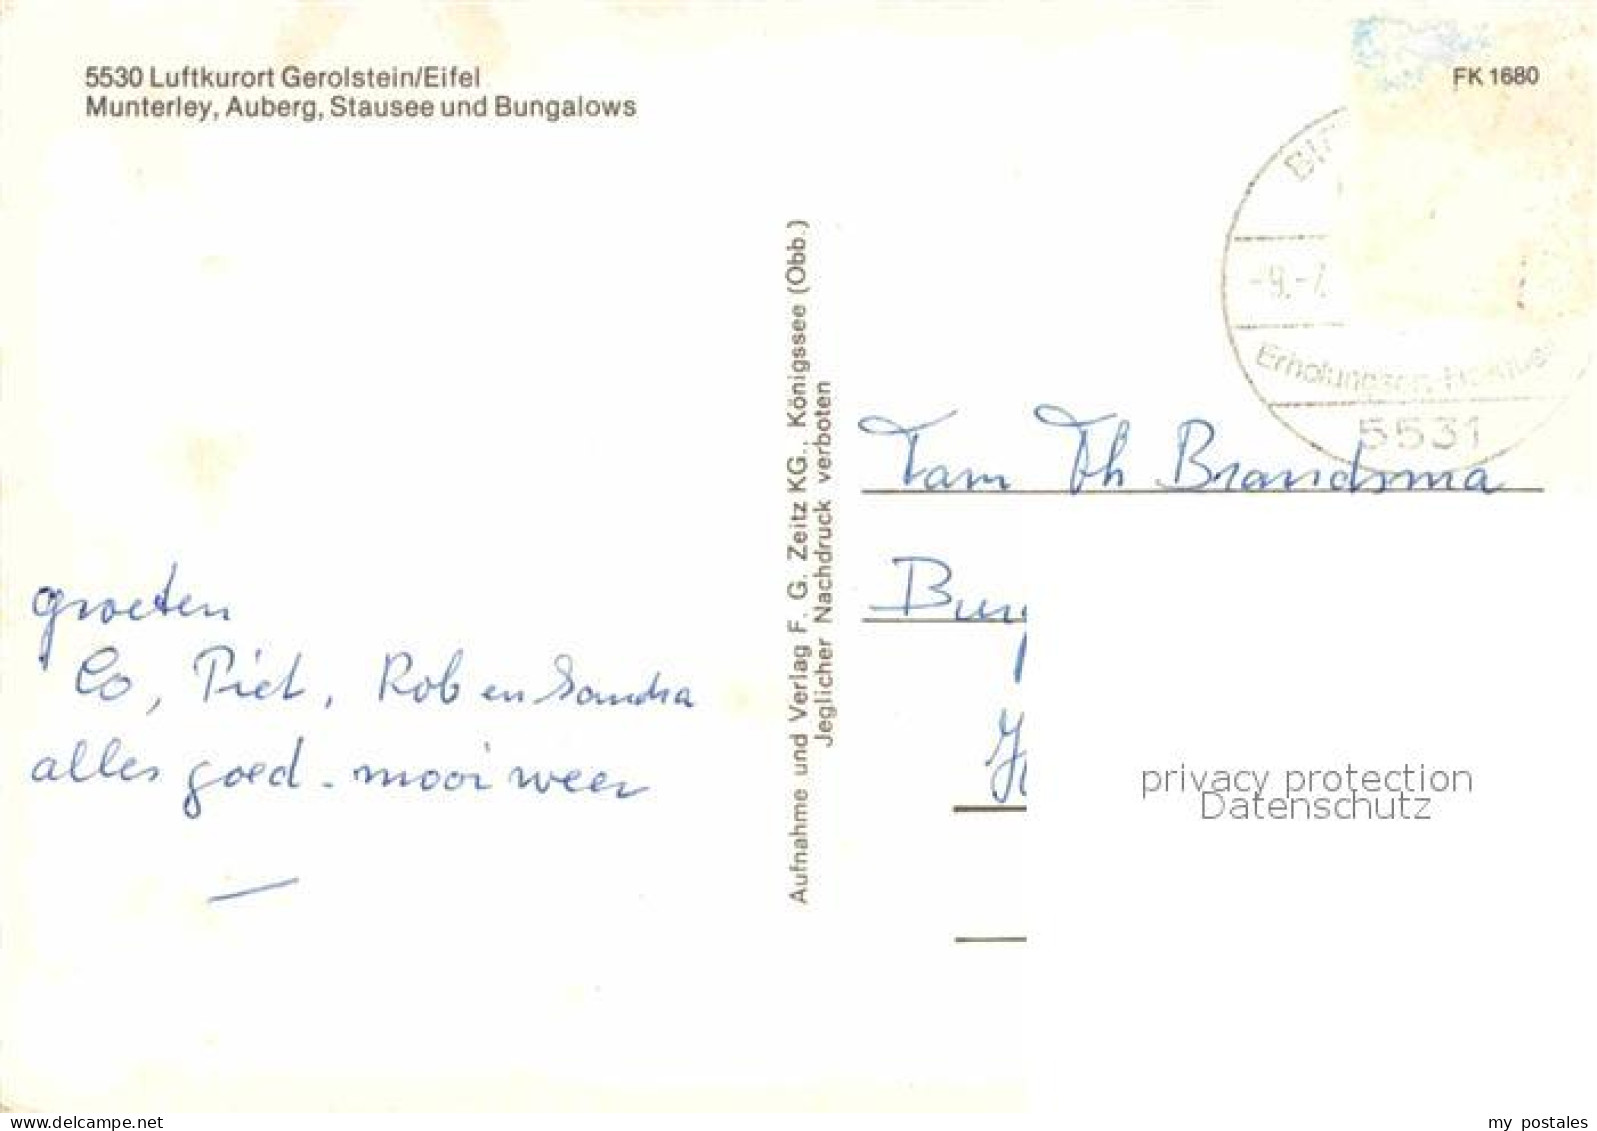 5530 Luftkurort Gerolstein/Eifel
Munterley, Auberg, Stausee und Bungalows
FK 1680
-9.-7.
5531
Aufnahme und Verlag F. G. Zeitz KG., Königssee (Obb.)
Jeglicher Nachdruck verboten
groeten
Co, Piet, Rob en Sandra
alles goed - mooi weer
Fam Th Brandsma
privacy protection
Datenschutz
delcampe.net
my_postales